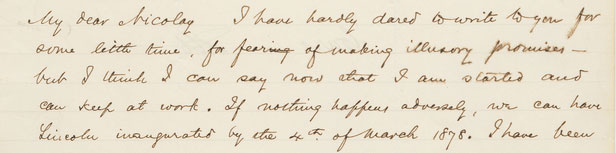 My dear Nicolay I have hardly dared to write to you for
some little time, for fearing of making illusory promises –
but I think I can say now that I am started and
can keep at work. If nothing happens adversely, we can have
Lincoln inaugurated by the 4th. of March 1878. I have been